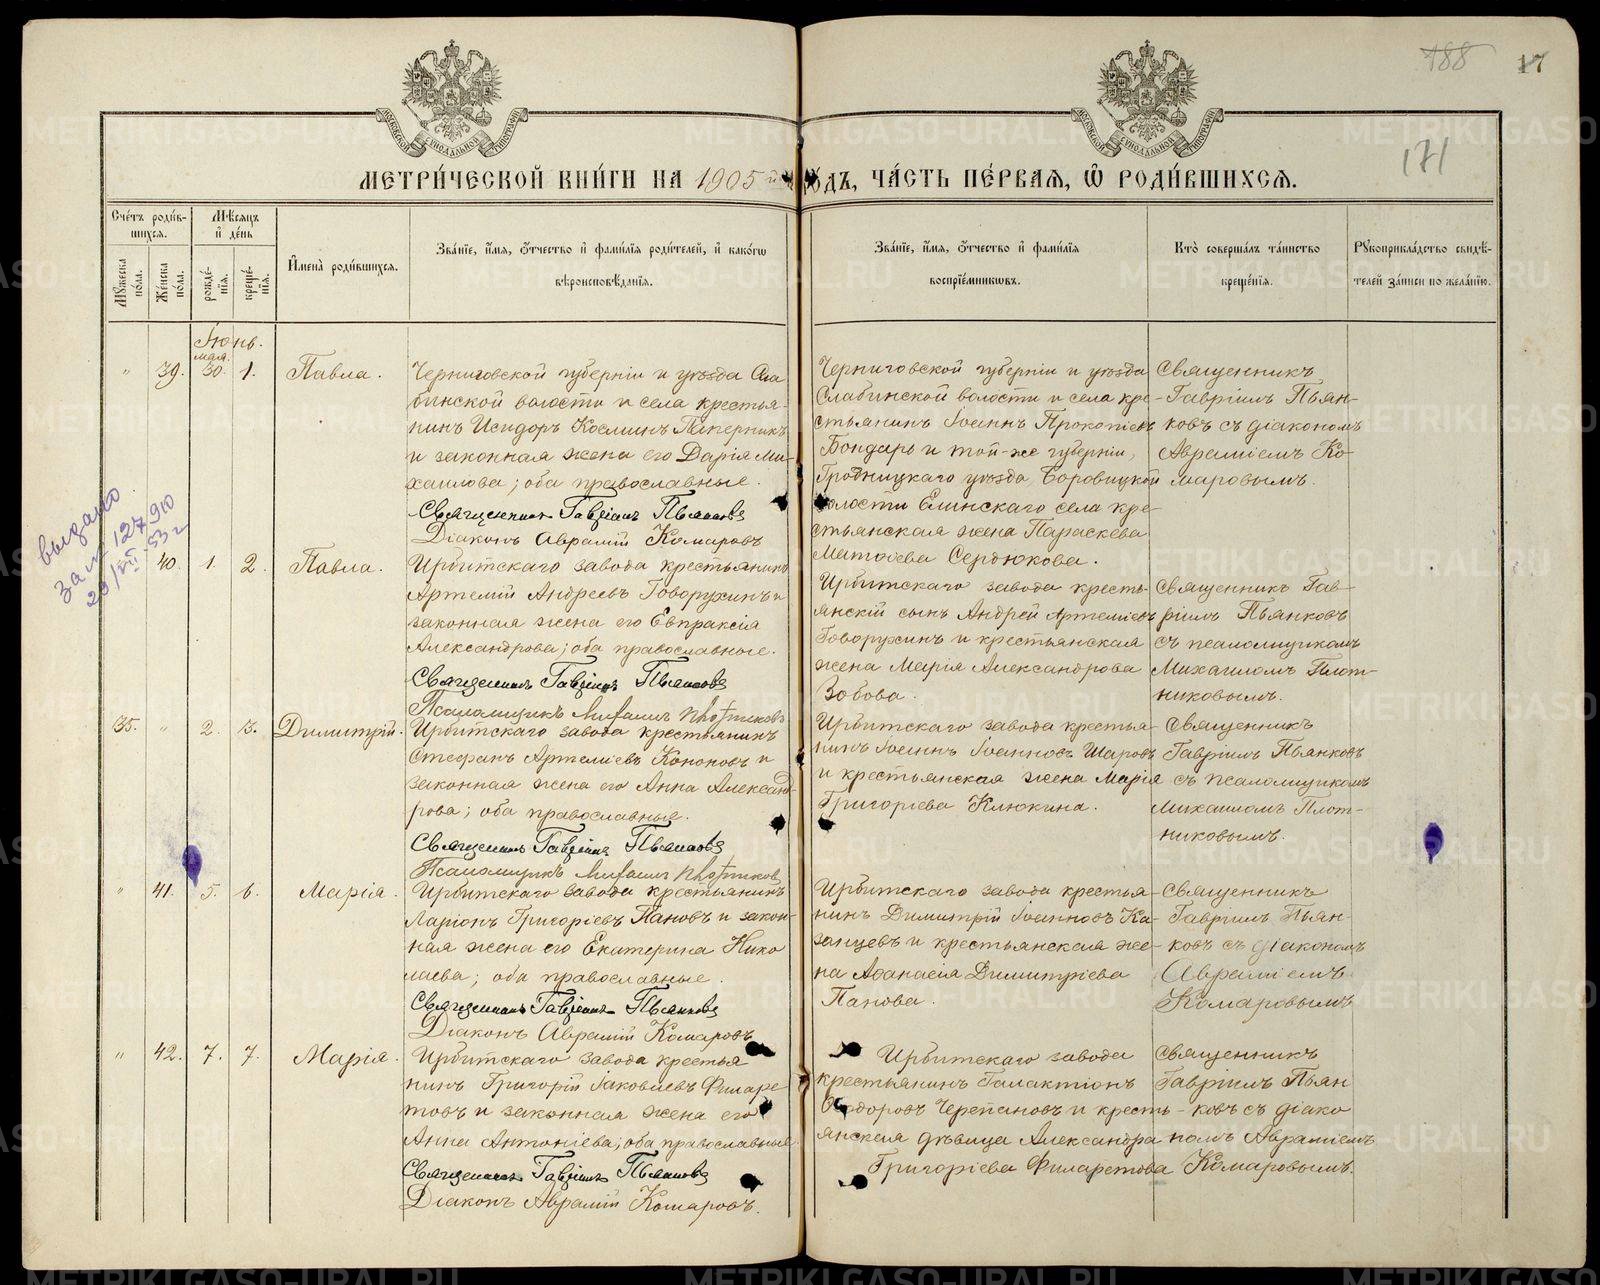 188
17
171
МЕТРИ́ЧЕСКОЙ КНИ́ГИ НА 1905 й ГО́ДЪ, ЧА́СТЬ ПЕ́РВАЯ, Ѽ РОДИ́ВШИХСЯ.
Сче́тъ роди́в-
шихся.
Мꙋжеска по́ла.
Же́нска по́ла.
Мѣ́сяцъ
и҆ де́нь
рожде́-
нїя.
креще́-
нїя.
И҆мена̀ роди́вшихся.
Зва́нїе, и҆́мя, ѻ҆́тчество и҆ фами́лїя роди́телей, и҆ како́гѡ
вѣроисповѣ́данїя.
Зва́нїе, и҆́мя, ѻ҆́тчество и҆ фами́лїя
воспрїе́мникѡвъ.
Кто̀ соверша́лъ та́инство
креще́нїя.
Рꙋкоприкла́дство свидѣ́-
телей за́писи по жела́нїю.
Іюнь.
мая.
" 39. 30. 1. Павла.
Черниговской губерніи и уѣзда Сла
бинской волости и села крестья-
нинъ Исидоръ Косминъ Паперникъ
и законная жена его Дарія Ми-
хаилова; оба православные.
Священникъ Гавріилъ Пьянковъ
Діаконъ Аврамій Комаровъ
Черниговской губерніи и уѣзда
Слабинской волости и села кре-
стьянинъ Іоаннъ Прокопіевъ
Бондарь и той-же губерніи,
Гродницкаго уѣзда Боровицкой
волости Елинскаго села кре-
стьянская жена Параскева
Матѳіева Сердюкова.
Священникъ
Гавріилъ Пьян-
ковъ съ діакономъ
Авраміемъ Ко-
маровымъ.
выдано
за № 127910
29/VII-53 г
40. 1. 2. Павла.
Ирбитскаго завода крестьянинъ
Артемій Андреевъ Говорухинъ и
законная жена его Евпраксія
Александрова; оба православные.
Священникъ Гавріилъ Пьянковъ
Псаломщикъ Михаилъ Плотниковъ
Ирбитскаго завода кресть-
янскій сынъ Андрей Артеміевъ
Говорухинъ и крестьянская
жена Марія Александрова
Зобова.
Священникъ Гав-
ріилъ Пьянковъ
съ псаломщикомъ
Михаиломъ Плот-
никовымъ.
35. " 2. 3. Димитрій.
Ирбитскаго завода крестьянинъ
Стефанъ Артеміевъ Кононовъ и
законная жена его Анна Александ-
рова; оба православные.
Священникъ Гавріилъ Пьянковъ
Псаломщикъ Михаилъ Плотниковъ
Ирбитскаго завода крестья-
нинъ Іоаннъ Іоанновъ Шаровъ
и крестьянская жена Марія
Григоріева Клюкина.
Священникъ
Гавріилъ Пьянковъ
съ псаломщикомъ
Михаиломъ Плот-
никовымъ.
" 41. 5. 6. Марія.
Ирбитскаго завода крестьянинъ
Ларіонъ Григоріевъ Пановъ и закон-
ная жена его Екатерина Нико
лаева; оба православные.
Священникъ Гавріилъ Пьянковъ
Діаконъ Аврамій Комаровъ
Ирбитскаго завода крестья-
нинъ Димитрій Іоанновъ Ка-
занцевъ и крестьянская же-
на Аѳанасія Димитріева
Панова.
Священникъ
Гавріилъ Пьян-
ковъ съ діакономъ
Авраміемъ
Комаровымъ
" 42. 7. 7. Марія.
Ирбитскаго завода крестья
нинъ Григорій Іаковлевъ Филаре-
товъ и законная жена его
Анна Антоніева; оба православные
Священникъ Гавріилъ Пьянковъ
Діаконъ Аврамій Комаровъ.
Ирбитскаго завода
крестьянинъ Галактіонъ
Ѳеодоровъ Черепановъ и кресть-
янская дѣвица Александра
Григоріева Филаретова
Священникъ
Гавріилъ Пьян
ковъ съ діако
номъ Авраміемъ
Комаровымъ.
METRIKI.GASO-URAL.RU